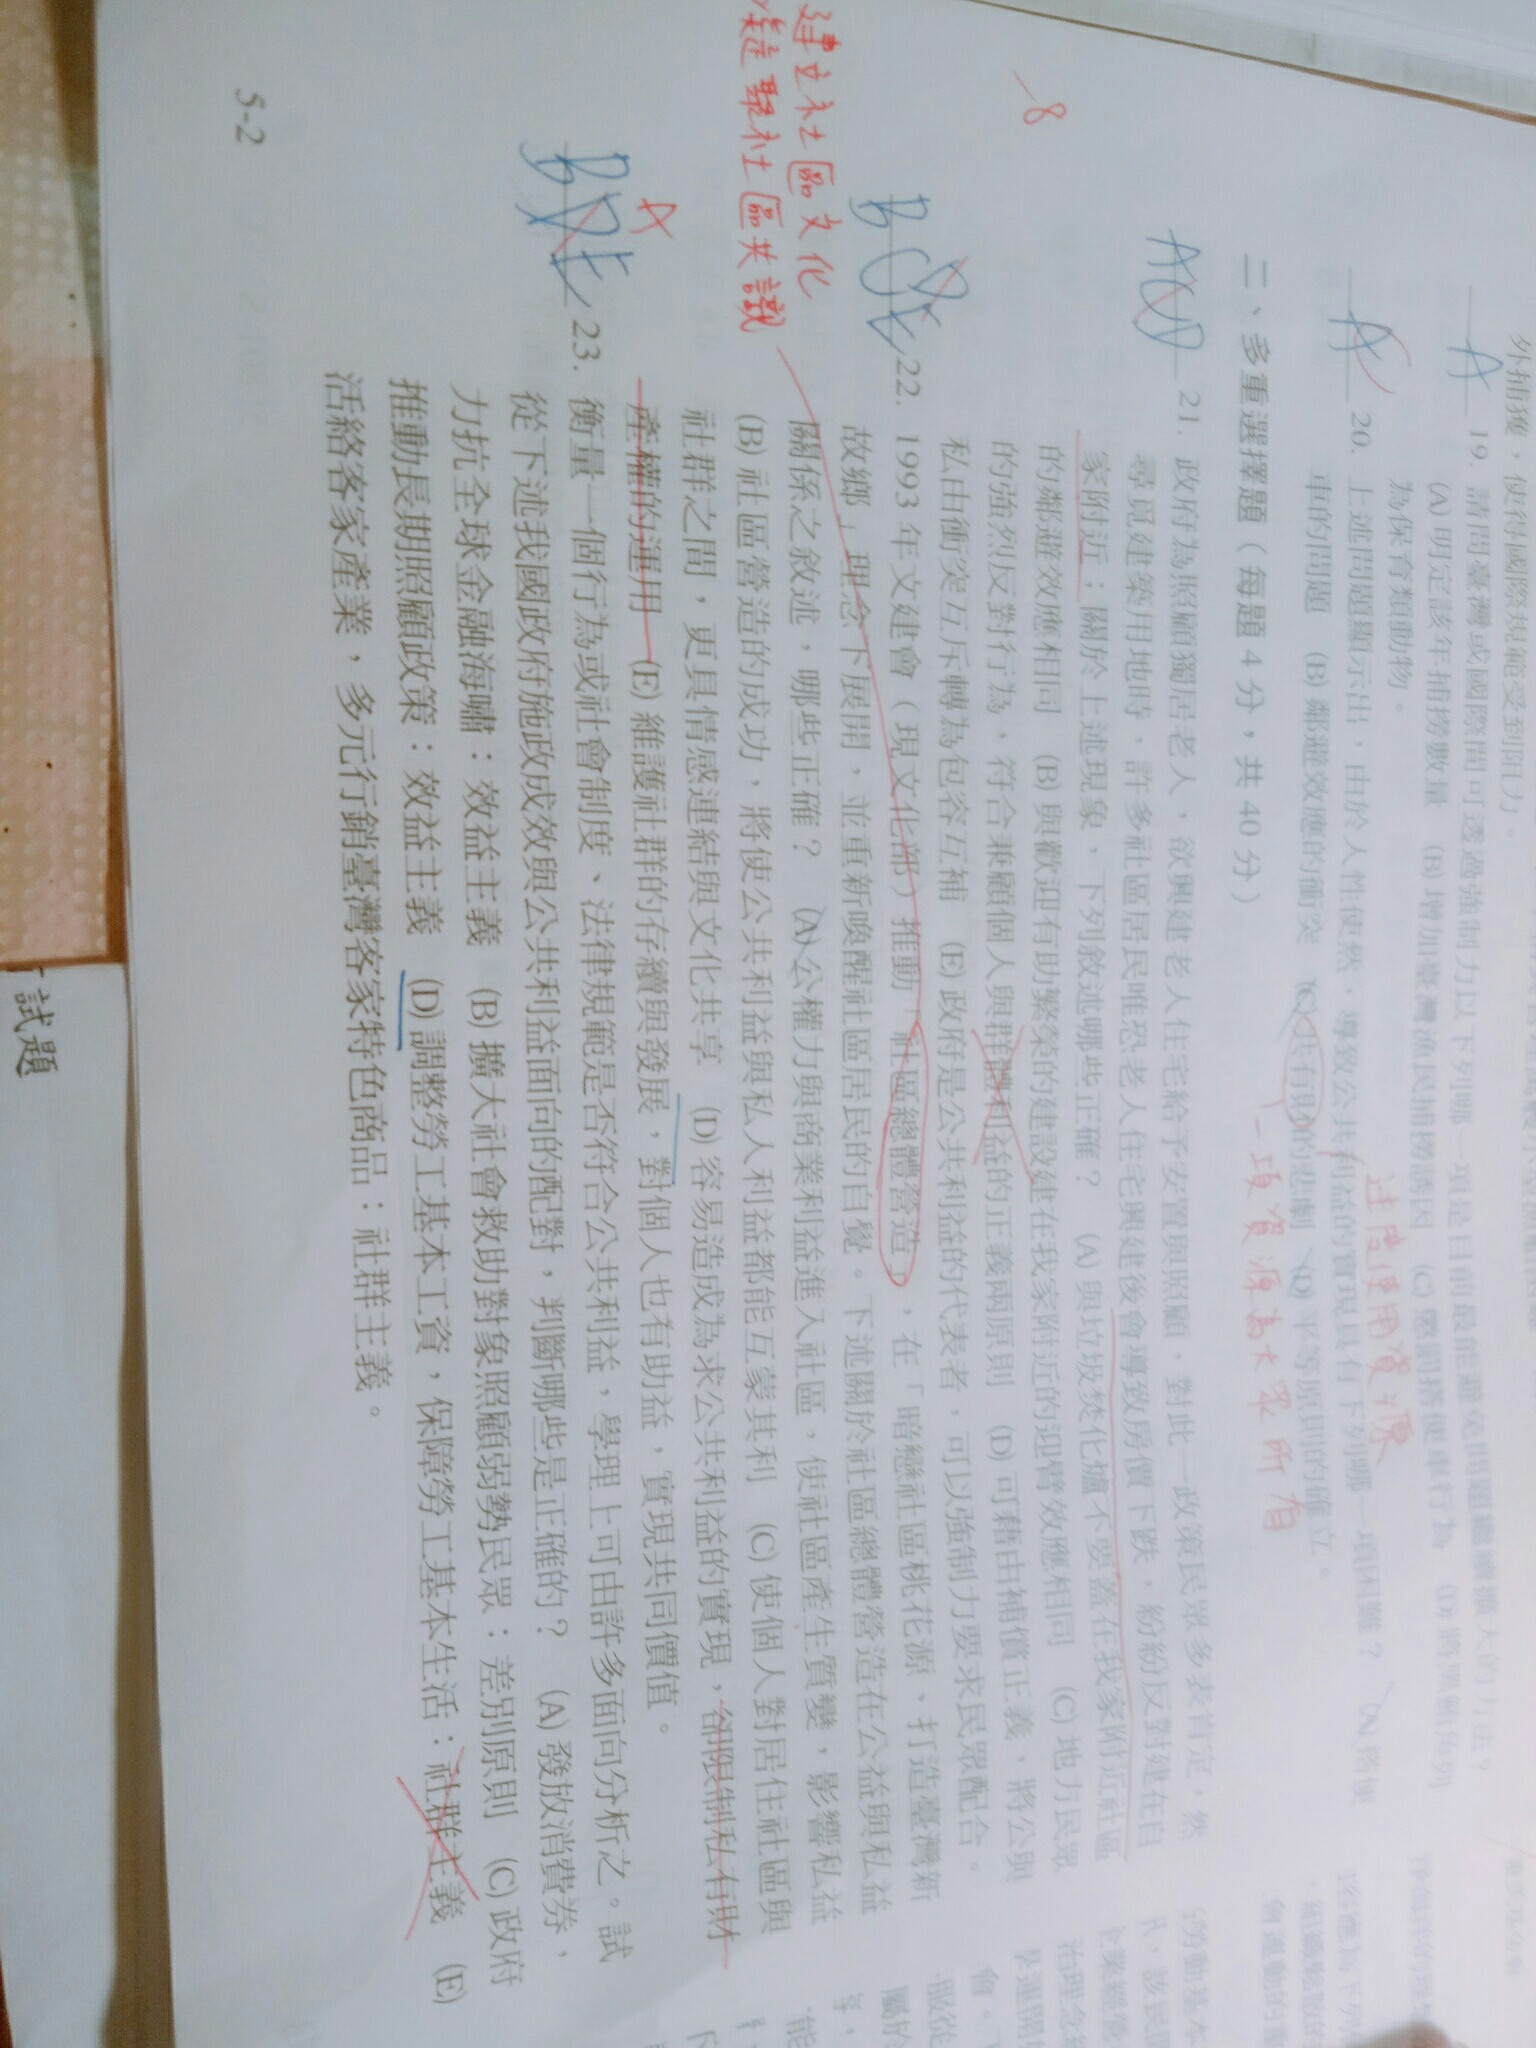 外捕獲，使得國際規範受到阻力。
A 19. 請問臺灣或國際間可透過強制力以下列哪一項是目前最能避免問題繼續擴大的方法？
(A) 明定該年捕撈數量 (B) 增加臺灣漁民捕撈誘因 (C) 懲罰搭便車行為 (D) 將黑鮪魚列
為保育類動物。
過度使用資源
A 20. 上述問題顯示出，由於人性使然，導致公共利益的實現具有下列哪一項困難？ (A) 搭便
車的問題 (B) 鄰避效應的衝突 (C) 共有財的悲劇 (D) 平等原則的確立。
一項資源為大眾所有
二、多重選擇題（每題 4 分，共 40 分）
ACD 21. 政府為照顧獨居老人，欲興建老人住宅給予安置與照顧，對此一政策民眾多表肯定，然
尋覓建築用地時，許多社區居民唯恐老人住宅興建後會導致房價下跌，紛紛反對建在自
家附近；關於上述現象，下列敘述哪些正確？ (A) 與垃圾焚化爐不要蓋在我家附近社區
的鄰避效應相同 (B) 與歡迎有助繁榮的建設建在我家附近的迎臂效應相同 (C) 地方民眾
的強烈反對行為，符合兼顧個人與群體利益的正義兩原則 (D) 可藉由補償正義，將公與
私由衝突互斥轉為包容互補 (E) 政府是公共利益的代表者，可以強制力要求民眾配合。
-8
22. 1993 年文建會（現文化部）推動「社區總體營造」，在「暗戀社區桃花源、打造臺灣新
故鄉」理念下展開，並重新喚醒社區居民的自覺。下述關於社區總體營造在公益與私益
關係之敘述，哪些正確？ (A) 公權力與商業利益進入社區，使社區產生質變，影響私益
(B) 社區營造的成功，將使公共利益與私人利益都能互蒙其利 (C) 使個人對居住社區與
社群之間，更具情感連結與文化共享 (D) 容易造成為求公共利益的實現，卻限制私有財
產權的運用 (E) 維護社群的存續與發展，對個人也有助益，實現共同價值。
建立社區文化
凝聚社區共識
A
23. 衡量一個行為或社會制度、法律規範是否符合公共利益，學理上可由許多面向分析之。試
從下述我國政府施政成效與公共利益面向的配對，判斷哪些是正確的？ (A) 發放消費券，
力抗全球金融海嘯：效益主義 (B) 擴大社會救助對象照顧弱勢民眾：差別原則 (C) 政府
推動長期照顧政策：效益主義 (D) 調整勞工基本工資，保障勞工基本生活：社群主義 (E)
活絡客家產業，多元行銷臺灣客家特色商品：社群主義。
5-2
試題